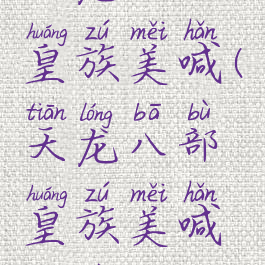 huáng zú měi hǎn
皇族美喊(
tiān lóng bā bù
天龙八部
huáng zú měi hǎn
皇族美喊